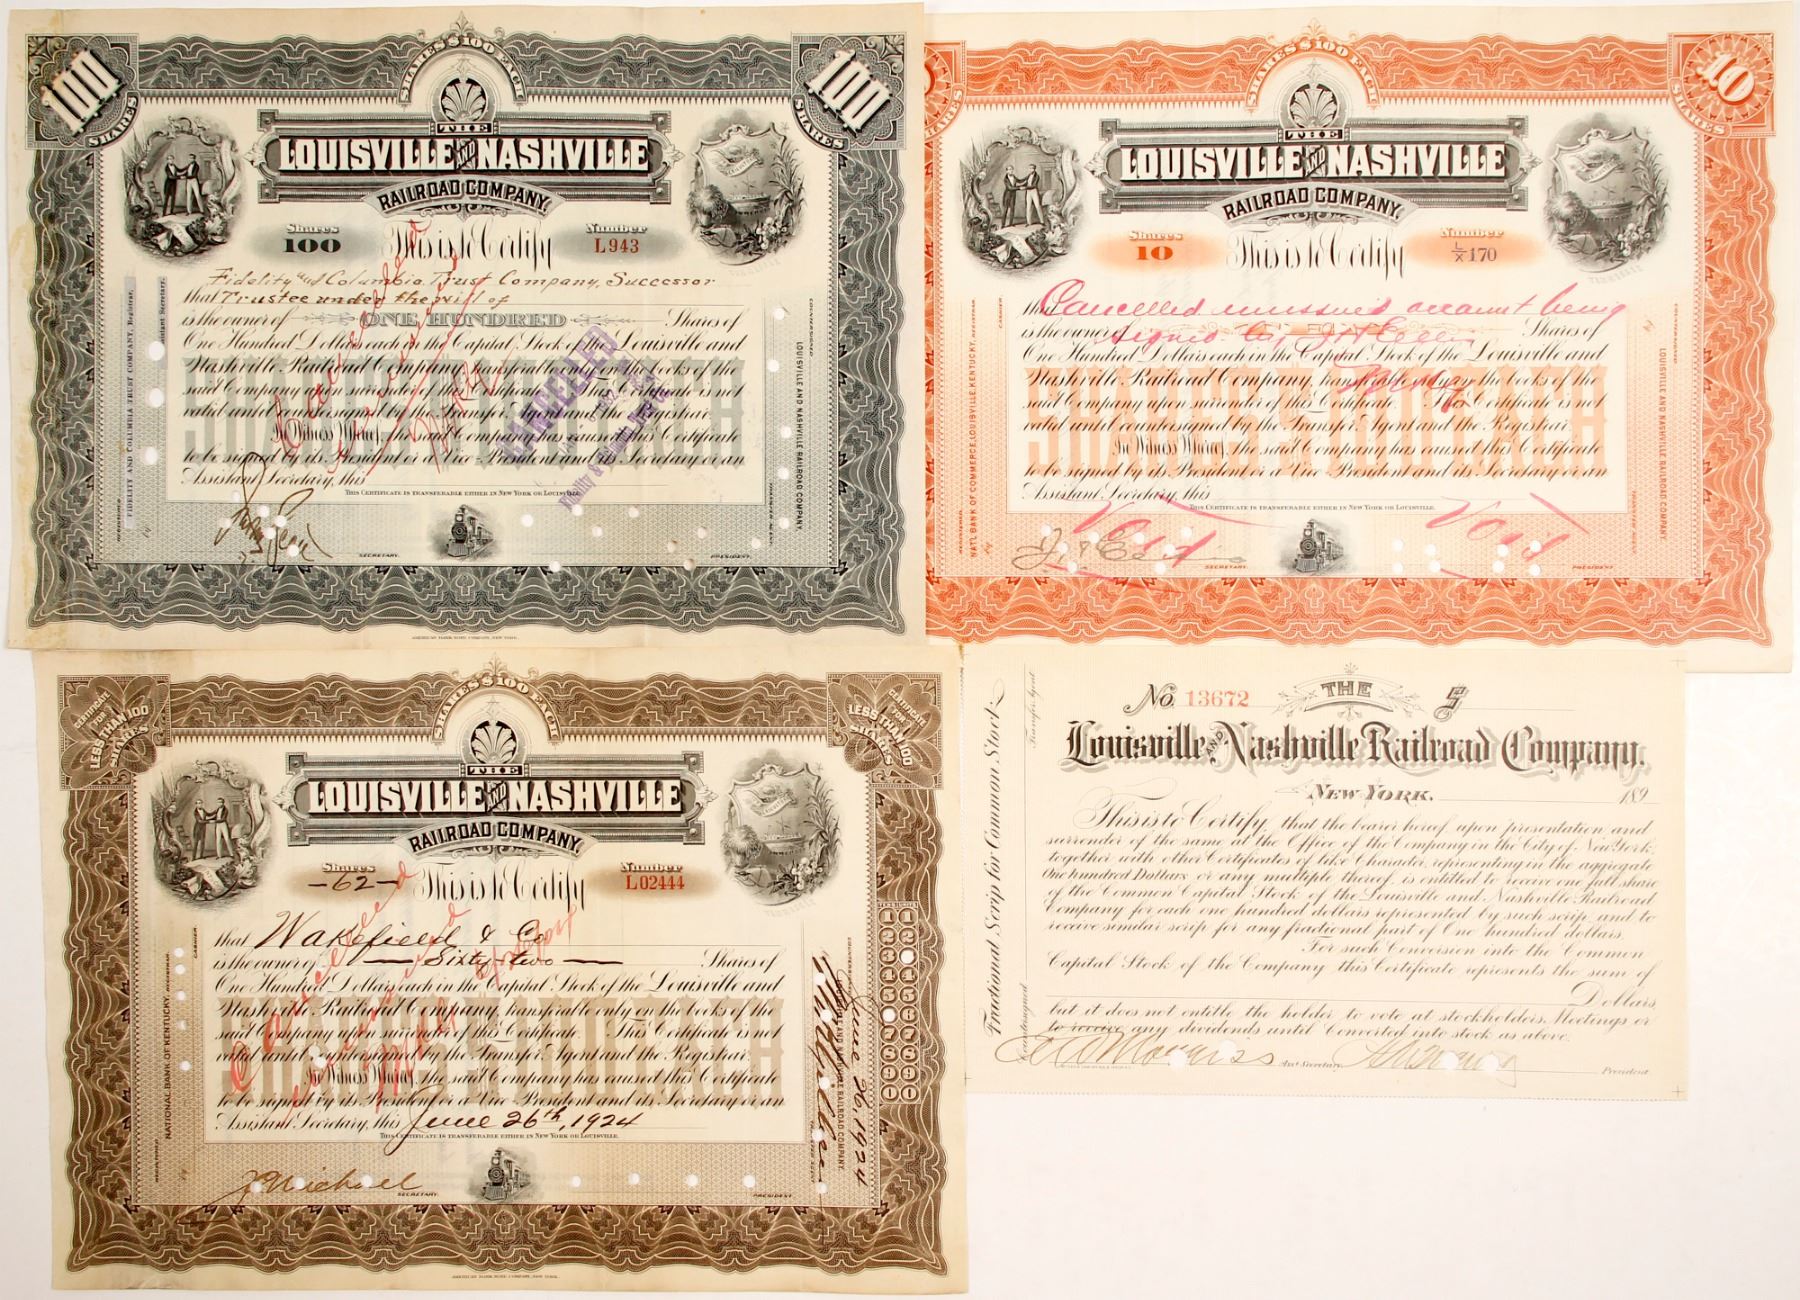 SHARES $100 EACH
100
SHARES
100
SHARES
THE
LOUISVILLE AND NASHVILLE
RAILROAD COMPANY.
Shares
100
This is to Certify
Number
L943
Fidelity and Columbia Trust Company, Successor
that Trustee under the will of
is the owner of ONE HUNDRED Shares of
One Hundred Dollars each in the Capital Stock of the Louisville and
Nashville Railroad Company, transferable only on the books of the
said Company upon surrender of this Certificate. This Certificate is not
valid until countersigned by the Transfer Agent and the Registrar.
In Witness Whereof, the said Company has caused this Certificate
to be signed by its President or a Vice President and its Secretary or an
Assistant Secretary, this
THIS CERTIFICATE IS TRANSFERABLE EITHER IN NEW YORK OR LOUISVILLE.
SECRETARY.
PRESIDENT.
Cancelled
CANCELLED
FIDELITY AND COLUMBIA TRUST COMPANY, Registrar,
Assistant Secretary.
COUNTERSIGNED
LOUISVILLE AND NASHVILLE RAILROAD COMPANY.
AMERICAN BANK NOTE COMPANY, NEW YORK.
SHARES $100 EACH
SHARES
10
SHARES
THE
LOUISVILLE AND NASHVILLE
RAILROAD COMPANY.
Shares
10
This is to Certify
Number
L/X 170
that Cancelled unissued account being
is the owner of Shares of
signed by
One Hundred Dollars each in the Capital Stock of the Louisville and
Nashville Railroad Company, transferable only on the books of the
said Company upon surrender of this Certificate. This Certificate is not
valid until countersigned by the Transfer Agent and the Registrar.
In Witness Whereof, the said Company has caused this Certificate
to be signed by its President or a Vice President and its Secretary or an
Assistant Secretary, this
THIS CERTIFICATE IS TRANSFERABLE EITHER IN NEW YORK OR LOUISVILLE.
Void Void
SECRETARY.
PRESIDENT.
REGISTERED
NAT'L BANK OF COMMERCE, LOUISVILLE, KENTUCKY, REGISTRAR.
by
CASHIER.
COUNTERSIGNED
LOUISVILLE AND NASHVILLE RAILROAD COMPANY.
TRANSFER AGENT
SHARES $100 EACH
CERTIFICATE FOR LESS THAN 100 SHARES
CERTIFICATE FOR LESS THAN 100 SHARES
THE
LOUISVILLE AND NASHVILLE
RAILROAD COMPANY.
Shares
-62-
This is to Certify
Number
L02444
that Wakefield & Co
is the owner of Sixty-two Shares of
One Hundred Dollars each in the Capital Stock of the Louisville and
Nashville Railroad Company, transferable only on the books of the
said Company upon surrender of this Certificate. This Certificate is not
valid until countersigned by the Transfer Agent and the Registrar.
In Witness Whereof, the said Company has caused this Certificate
to be signed by its President or a Vice President and its Secretary or an
Assistant Secretary, this June 26th, 1924
THIS CERTIFICATE IS TRANSFERABLE EITHER IN NEW YORK OR LOUISVILLE.
SECRETARY.
PRESIDENT.
Cancelled
REGISTERED
NATIONAL BANK OF KENTUCKY, REGISTRAR.
by
CASHIER.
COUNTERSIGNED
June 26, 1924
LOUISVILLE AND NASHVILLE RAILROAD COMPANY.
TRANSFER AGENT
TENS UNITS
1 1
2 2
3 3
4 4
5 5
6 6
7 7
8 8
9 9
0 0
AMERICAN BANK NOTE COMPANY, NEW YORK.
No. 13672 THE $
Louisville AND Nashville Railroad Company.
NEW YORK. 189
This is to Certify, that the bearer hereof, upon presentation and
surrender of the same at the Office of the Company in the City of New York,
together with other Certificates of like Character, representing in the aggregate
One hundred Dollars or any multiple thereof, is entitled to receive one full share
of the Common Capital Stock of the Louisville and Nashville Railroad
Company for each one hundred dollars represented by such scrip, and to
receive similar scrip for any fractional part of One hundred dollars.
For such Conversion into the Common
Capital Stock of the Company this Certificate represents the sum of
Dollars,
but it does not entitle the holder to vote at stockholders, Meetings or
to receive any dividends until Converted into stock as above.
Asst Secretary.
President.
Fractional Scrip for Common Stock.
Countersigned
Transfer Agent